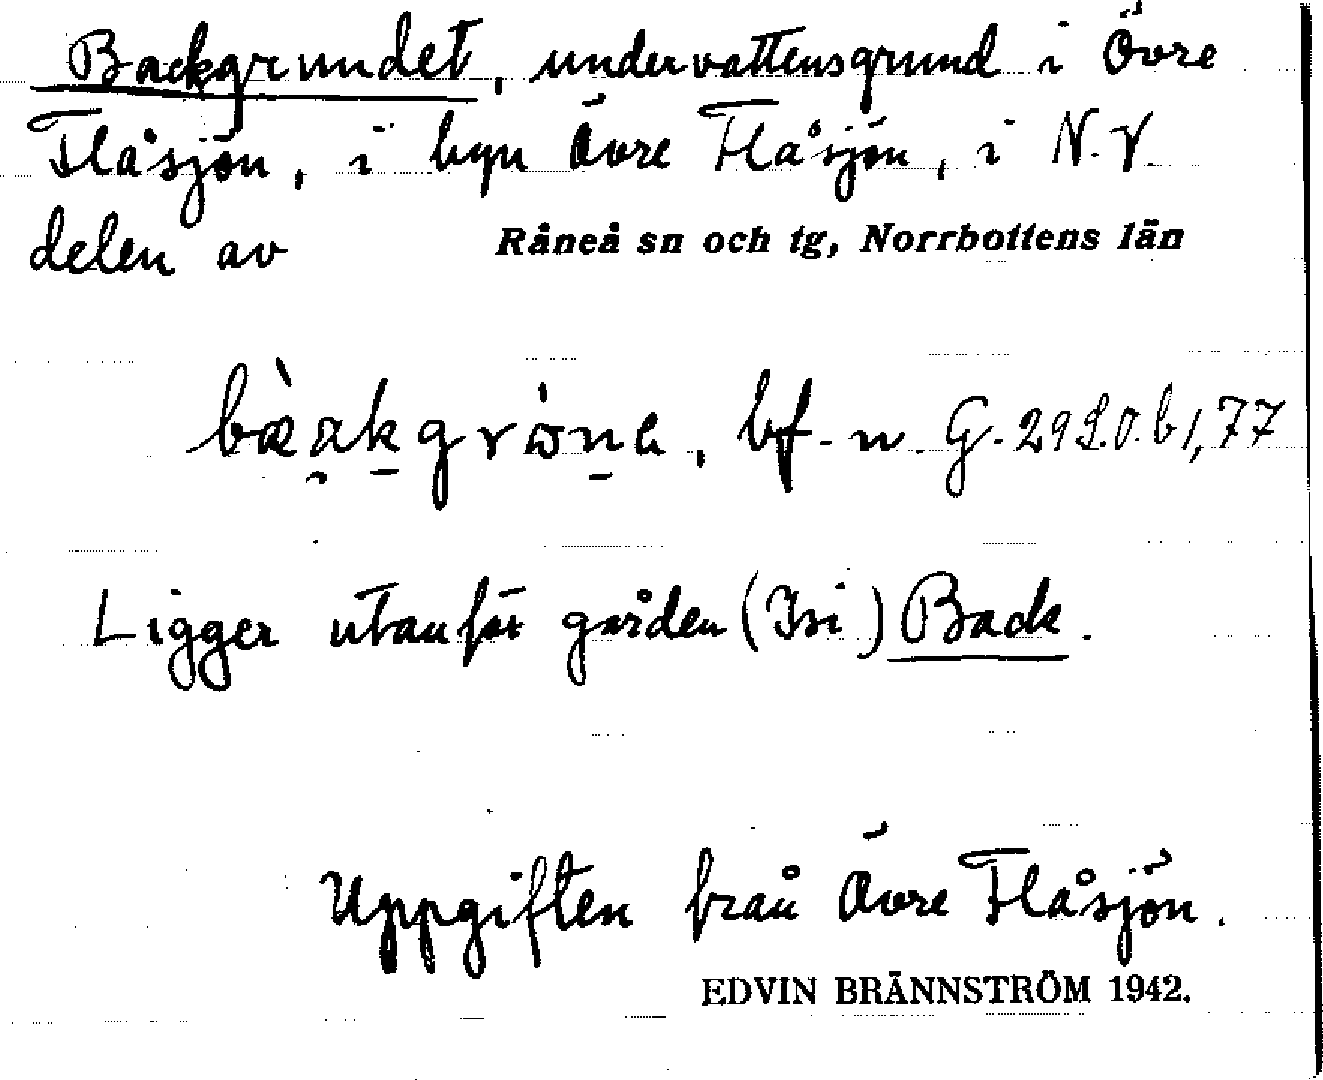 Backgrundet, undervattensgrund i Övre
Flåsjön, i byn Övre Flåsjön, i N.V.
delen av Råneå sn och tg, Norrbottens län
bf. n. G.
Ligger utanför gården (Isi) Back.
Uppgiften från Övre Flåsjön.
EDVIN BRÄNNSTRÖM 1942.